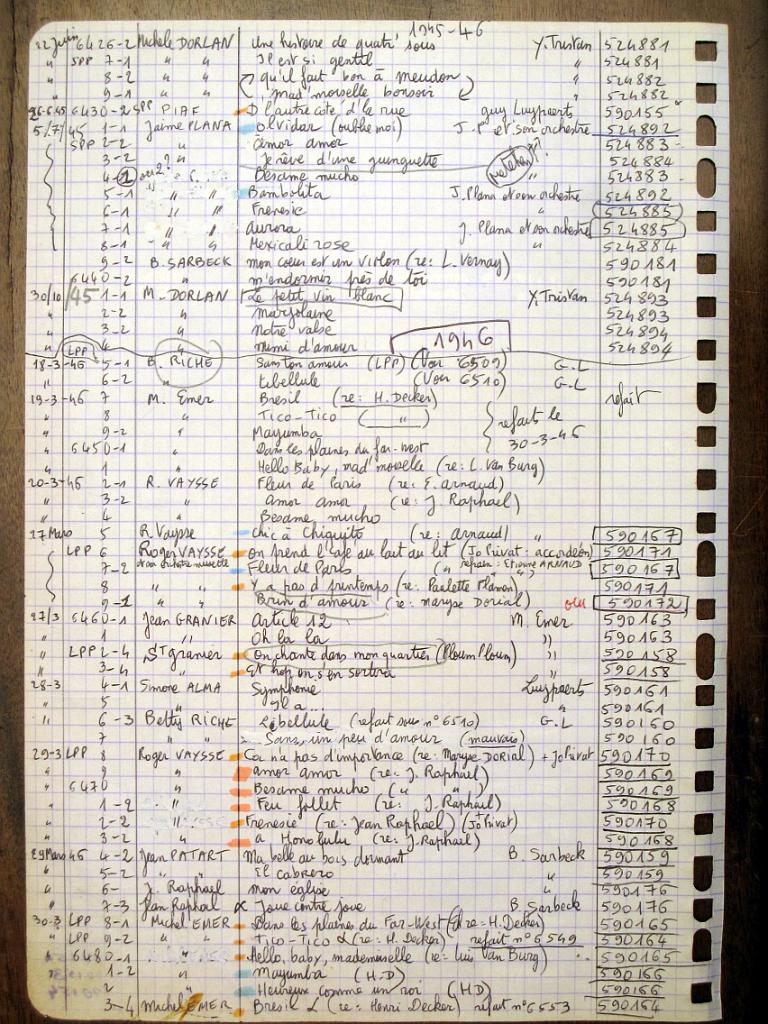 1945-46
22 Juin 6426-2 Michele DORLAN Une histoire de quatr' sous Y. Tristan 524881
" SPP 7-1 " " Il est si gentil " 524881
" 8-2 " " qu'il fait bon à meudon " 524882
" 9-1 " " mad'moiselle bonsoir " 524882
26-6-45 6430-2 SPP PIAF D l'autre côté d'la rue guy Luypaerts 590155
5/7/45 1-1 Jaime PLANA Olvidar (oublie moi) J. P et son orchestre 524892
SPP 2-2 " amor amor 524883
3-2 " Je rêve d'une guinguette 524884
Besame mucho " 524883
5-1 " " Bambolita J. Plana et son orchestre 524892
6-1 " " Frenesie " 524885
7-1 " " aurora J. Plana et son orchestre 524885
8-1 " " Mexicali rose " 524884
9-2 B. SARBECK mon cœur est un violon (re: L. Vernay) 590181
6440-2 m'endormir près de toi 590181
30/10/45 1-1 M. DORLAN Le petit vin blanc Y. Tristan 524893
" 2-2 " Marjolaine 524893
" 3-2 " Notre valse 524894
" 4 " Mimi d'amour 524894
1946
LPP
18-3-46 5-1 B. RICHE Sans ton amour (LPP) (Voir 6509) G.L
" 6-2 " Libellule (Voir 6510) G.L
19-3-46 7 M. Emer Bresil (re: H. Decker) refait
" 8 " Tico-Tico ( " ) refait le 30-3-46
" 9-2 " Mayumba
" 6450-1 " Dans les plaines du far-west
" 1 " Hello Baby, mad'moiselle (re: L. Van Burg)
20-3-46 2-1 R. VAYSSE Fleur de Paris (re: E. arnaud)
" 3-2 " Amor amor (re: J. Raphael)
" 4 " Besame mucho
27 Mars 5 R. Vaysse chic à Chiquito (re: arnaud) " 590167
LPP 6 Roger VAYSSE on prend l'café au lait au lit (Jo Privat: accordéon) 590171
7-2 et son orchestre musette Fleur de Paris (" refrain: Etienne ARNAUD 590167
8 " " Y a pas d'printemps (re: Paulette Flamon) 590171
9-1 " " Brin d'amour (re: maryse Dorial) oui 590172
27/3 6460-1 Jean GRANIER Article 12 M. Emer 590163
" 1 " Oh la la " 590163
" LPP 2-4 St granier On chante dans mon quartier (Ploum Ploum) " 590158
" 3-4 " Et hop on s'en sortira " 590158
28-3 4-1 Simone ALMA Symphonie Luypaerts 590161
" 5 " Il a... " 590161
" 6-3 Betty RICHE Libellule (refait sous n°6510) G.L 590160
7 " " Sans un peu d'amour (mauvais) " 590160
29-3 LPP 8 Roger VAYSSE Ca n'a pas d'importance (re: Maryse DORIAL) + Jo Privat 590170
" 9 " amor amor (re: J. Raphael) 590169
" 6470 " Besame mucho (" " ) 590169
" 1-2 " Feu follet (re: J. Raphael) 590168
" 2-2 " Frenesie (re: Jean Raphael) (+ Jo Privat) 590170
" 3-2 " a Honolulu (re: J. Raphael) 590168
29 Mars 46 4-2 Jean PATART Ma belle au bois dormant B. Sarbeck 590159
" 5-2 " El cabrero " 590159
" 6- J. Raphael mon église " 590176
" 7-3 Jean Raphal Joue contre joue B. Sarbeck 590176
30-3 LPP 8-1 Michel EMER Dans les plaines du Far-West (re: H. Decker) 590165
" LPP 9-2 " " Tico-Tico (re: H. Decker) refait n°6549 590164
6480-1 " Hello, baby, mademoiselle (re: Luis Van Burg) 590165
1-2 " Mayumba (H.D) 590166
2 Heureux comme un roi (HD) 590166
3-4 Michel EMER Bresil (re: Henri Decker) refait n°6553 590164